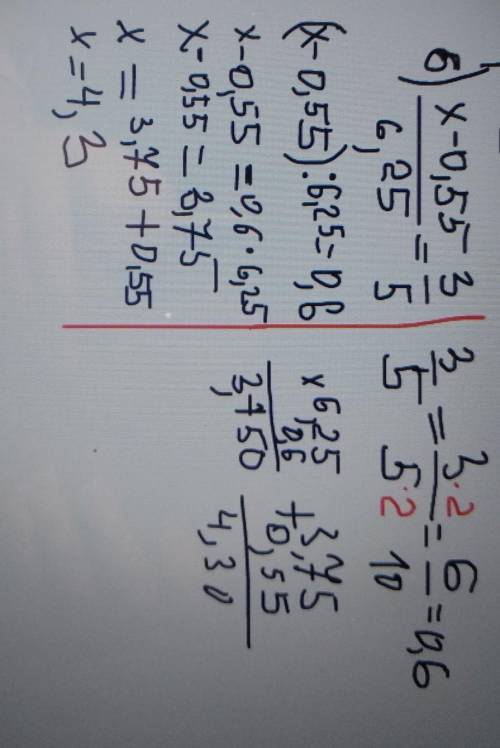 б) x-0,55 / 6,25 = 3/5
(x-0,55):6,25=0,6
x-0,55=0,6·6,25
x-0,55=3,75
x=3,75+0,55
x=4,3
3/5 = 3·2/5·2 = 6/10 = 0,6
x 6,25
0,6
3,750
+3,75
0,55
4,30